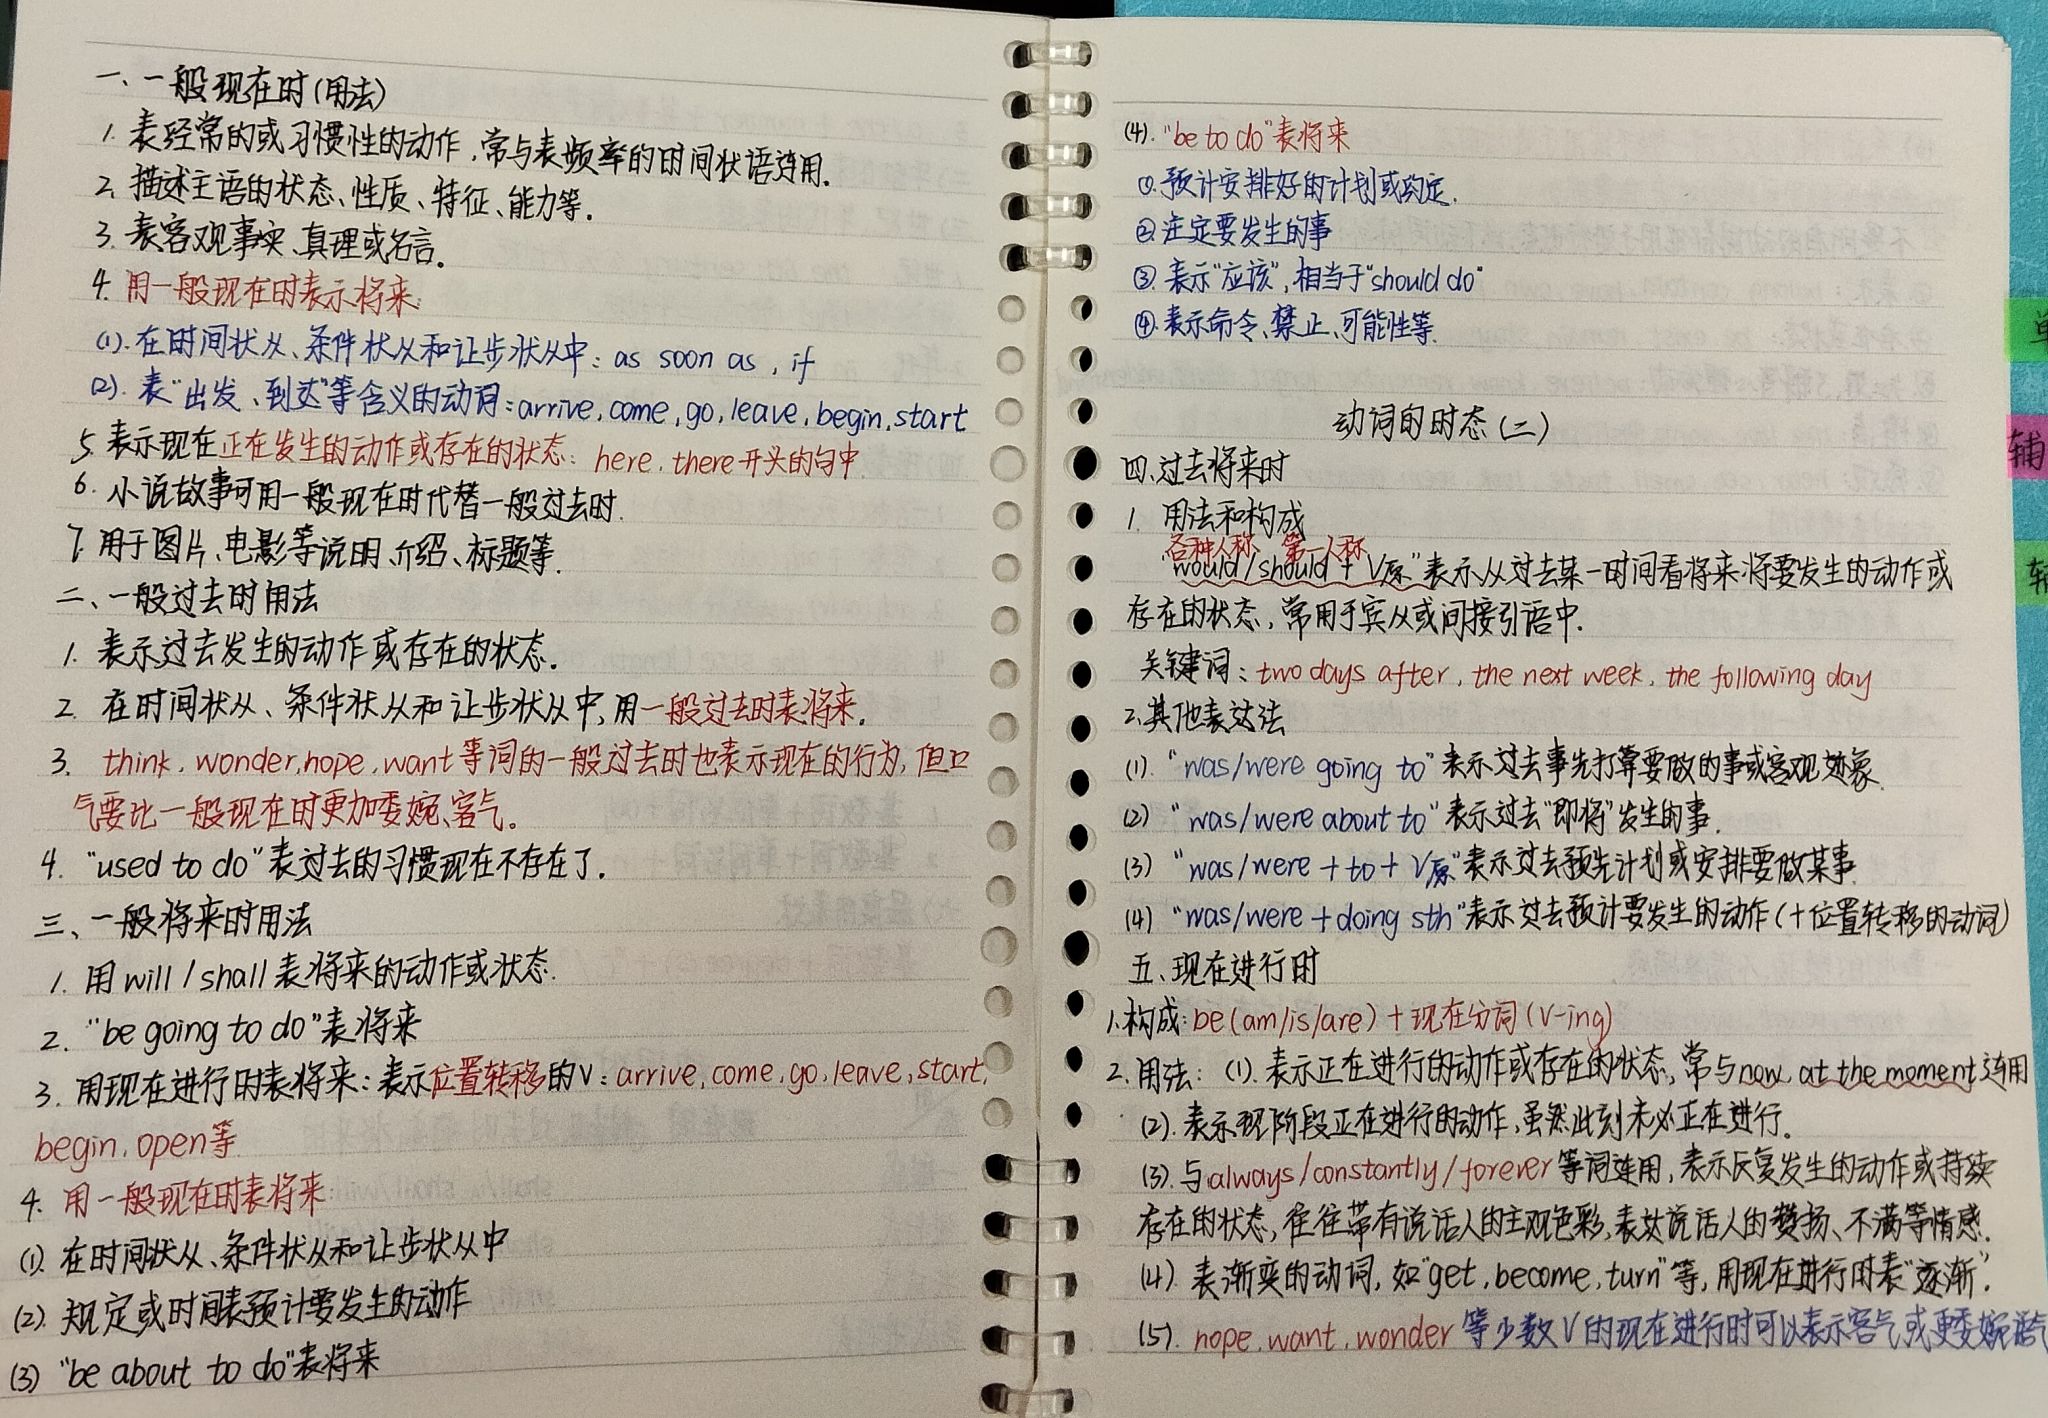 一、一般现在时(用法)
1. 表经常的或习惯性的动作,常与表频率的时间状语连用.
2. 描述主语的状态、性质、特征、能力等.
3. 表客观事实、真理或名言.
4. 用一般现在时表示将来:
(1). 在时间状从、条件状从和让步状从中: as soon as, if
(2). 表“出发、到达”等含义的动词: arrive, come, go, leave, begin, start
5. 表示现在正在发生的动作或存在的状态: here, there开头的句中
6. 小说故事可用一般现在时代替一般过去时.
7. 用于图片、电影等说明、介绍、标题等.
二、一般过去时用法
1. 表示过去发生的动作或存在的状态.
2. 在时间状从、条件状从和让步状从中,用一般过去时表将来.
3. think, wonder, hope, want等词的一般过去时也表示现在的行为,但口
气要比一般现在时更加委婉、客气。
4. “used to do”表过去的习惯现在不存在了.
三、一般将来时用法
1. 用will/shall表将来的动作或状态.
2. “be going to do”表将来
3. 用现在进行时表将来:表示位置转移的V: arrive, come, go, leave, start,
begin, open等
4. 用一般现在时表将来
(1) 在时间状从、条件状从和让步状从中
(2). 规定或时间表预计要发生的动作
(3) “be about to do”表将来
(4). “be to do”表将来
①. 预计安排好的计划或约定.
② 注定要发生的事
③. 表示“应该”,相当于“should do”
④. 表示命令、禁止、可能性等.
动词的时态(二)
四.过去将来时
1. 用法和构成
各种人称 第一人称
would/should + V原”表示从过去某一时间看将来将要发生的动作或
存在的状态,常用于宾从或间接引语中.
关键词: two days after, the next week, the following day
2. 其他表达法
(1). “was/were going to”表示过去事先打算要做的事或客观迹象.
(2) “was/were about to”表示过去“即将”发生的事.
(3) “was/were + to + V原”表示过去预先计划或安排要做某事.
(4) “was/were + doing sth”表示过去预计要发生的动作(+位置转移的动词)
五、现在进行时
1. 构成: be (am/is/are) + 现在分词 (V-ing)
2. 用法: (1). 表示正在进行的动作或存在的状态,常与now, at the moment连用
(2). 表示现阶段正在进行的动作,虽然此刻未必正在进行.
(3). 与always/constantly/forever等词连用,表示反复发生的动作或持续
存在的状态,往往带有说话人的主观色彩,表达说话人的赞扬、不满等情感.
(4) 表渐变的动词,如“get, become, turn”等,用现在进行时表“逐渐”.
(5). hope, want, wonder等少数V的现在进行时可以表示客气或更委婉语气
单
辅